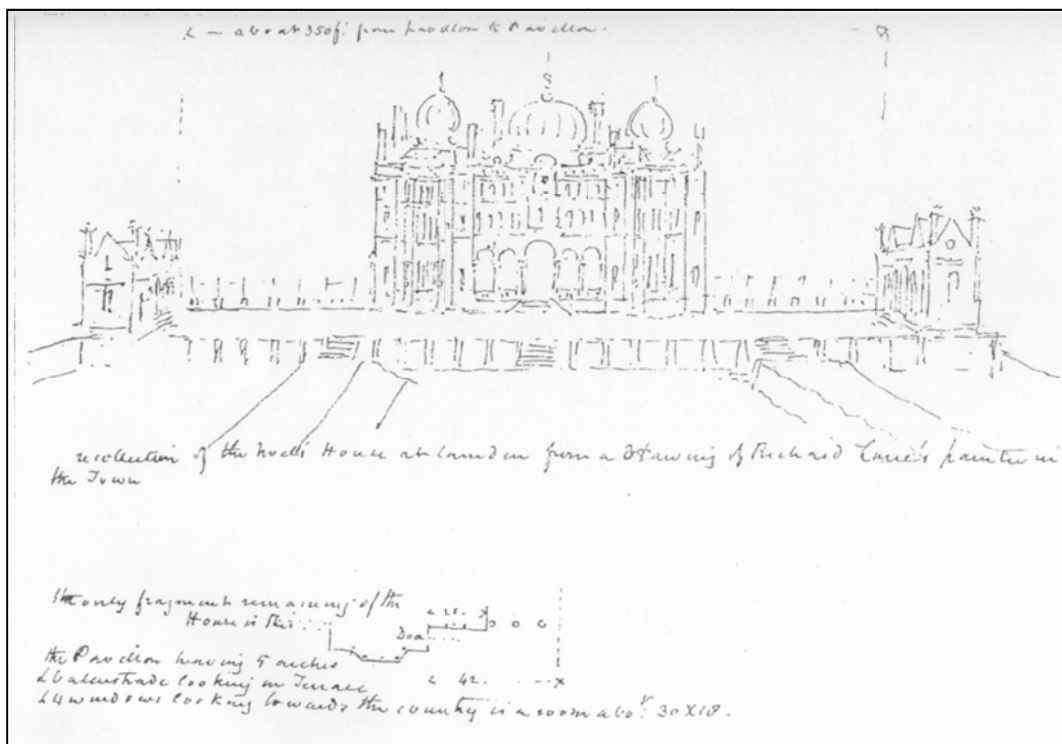 L – about 350f. from pavillon to Pavillon.
recollection of the House at from a drawing of Richard painter in
the Town
the only fragment remaining of the
House is this
Doo
the Pavillon having 5 arches
balustrade looking on Terrace
4 windows looking towards the country is a room abo.t 30 X 18.
L 42. X